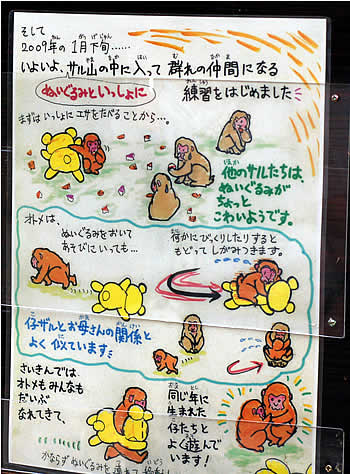 そして
2009年の1月下旬……
いよいよ、サル山の中に入って 群れの仲間になる
ぬいぐるみといっしょに 練習をはじめました
まずはいっしょにエサをたべることから…。
他のサルたちは、
ぬいぐるみが
ちょっと
こわいようです。
オトメは、
ぬいぐるみをおいて
あそびにいっても…
何かにびっくりしたりすると
もどって しがみつきます。
仔ザルとお母さんの関係と
よく似ています
さいきんでは、
オトメもみんなも
だいぶ
なれてきて、
同じ年に
生まれた
仔たちと
よく遊んで
います!
かならず ぬいぐるみを